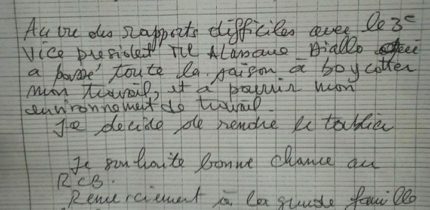 Au vu des rapports difficiles avec le 3e
Vice president Mr Alassane Diallo qui
a passé toute la saison à boycotter
mon travail, et a pourrir mon
environnement de travail.
Je decide de rendre le tablier
Je souhaite bonne chance au
RCB.
Remerciement à la grande famille